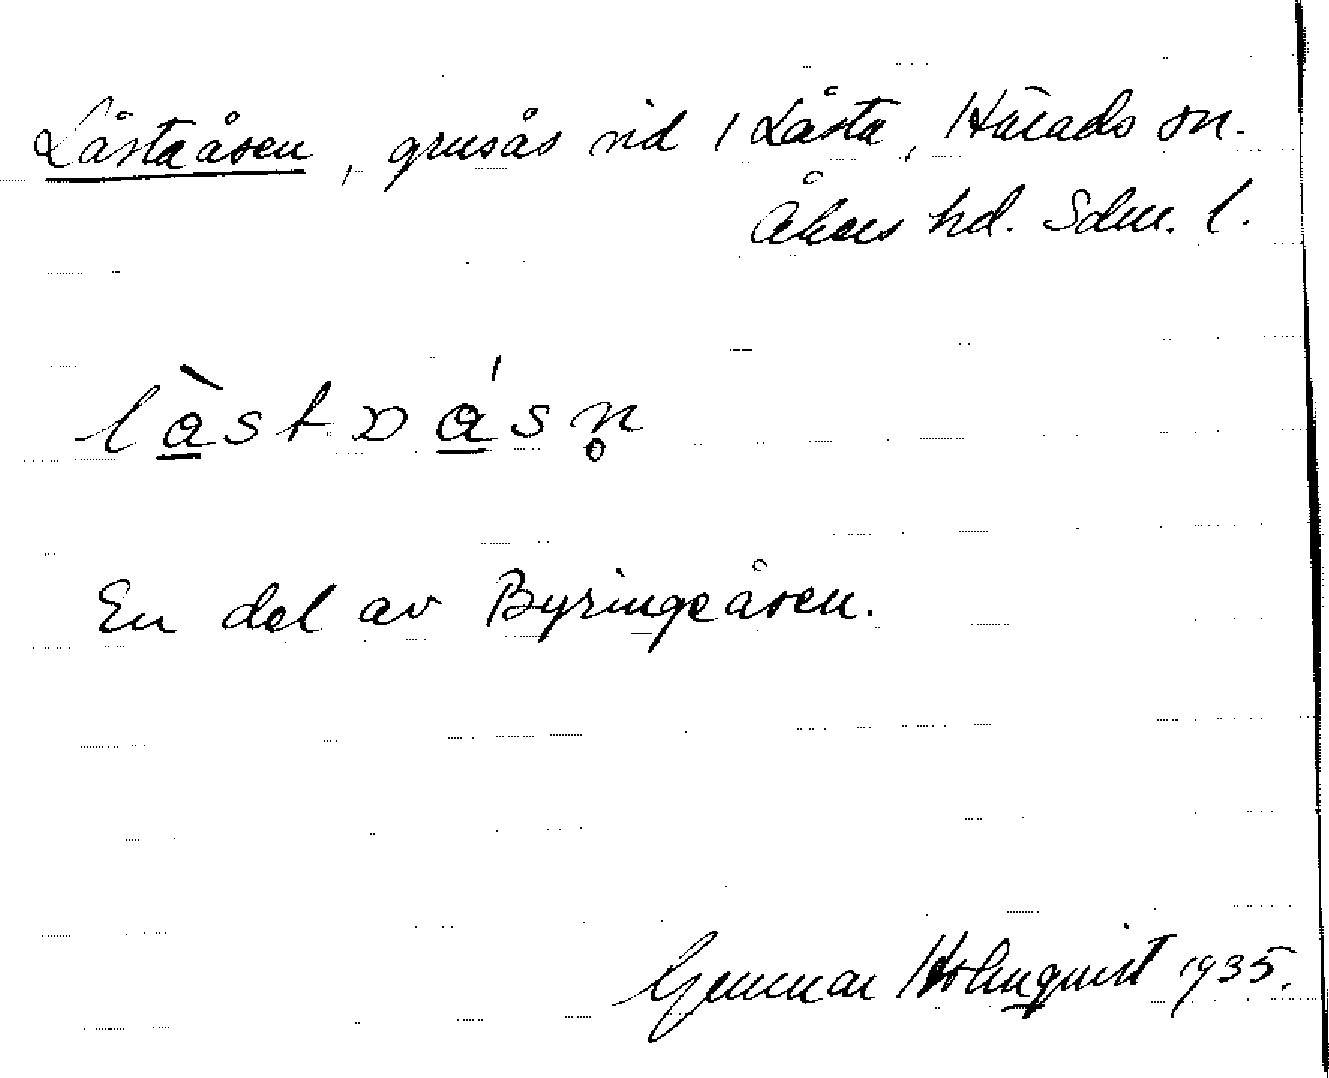 Låstaåsen, grusås vid 1 Låsta, Härads sn.
Åkers hd. Sdm. l.
En del av Byringeåsen.
Gunnar Holmquist 1935.